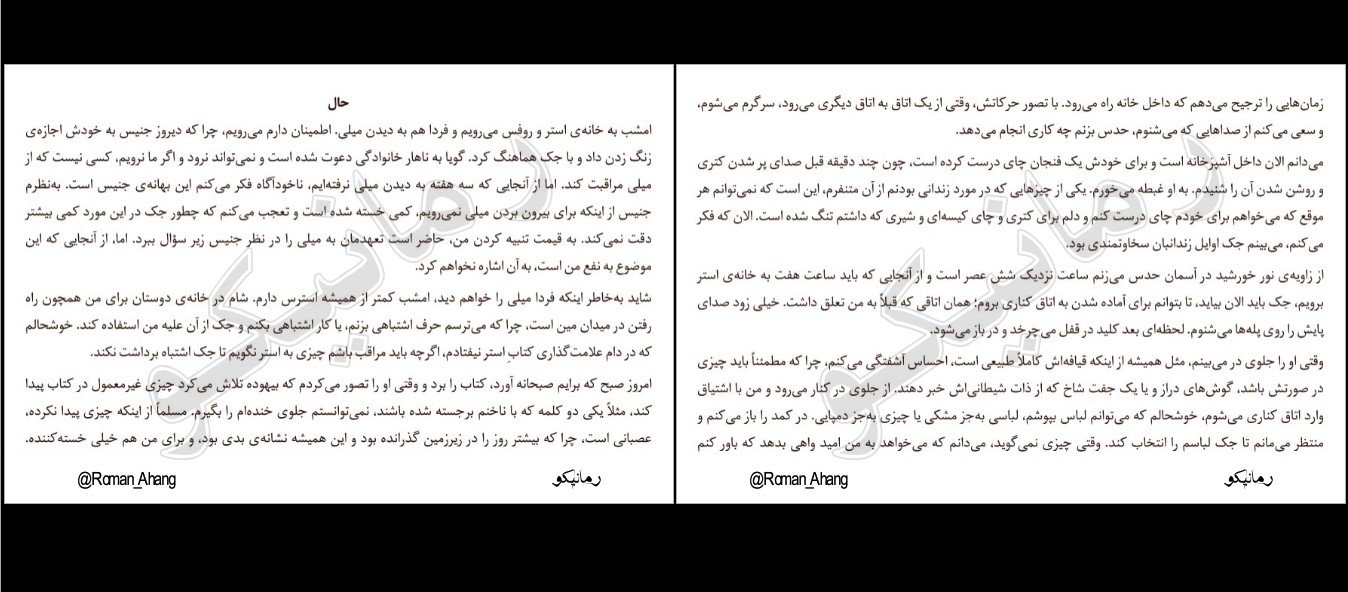 حال
امشب به خانه‌ی استر و روفس می‌رویم و فردا هم به دیدن میلی. اطمینان دارم می‌رویم، چرا که دیروز جنیس به خودش اجازه‌ی
زنگ زدن داد و با جک هماهنگ کرد. گویا به ناهار خانوادگی دعوت شده است و نمی‌تواند نرود و اگر ما نرویم، کسی نیست که از
میلی مراقبت کند. اما از آنجایی که سه هفته به دیدن میلی نرفته‌ایم، ناخودآگاه فکر می‌کنم این بهانه‌ی جنیس است. به‌نظرم
جنیس از اینکه برای بیرون بردن میلی نمی‌رویم، کمی خسته شده است و تعجب می‌کنم که چطور جک در این مورد کمی بیشتر
دقت نمی‌کند. به قیمت تنبیه کردن من، حاضر است تعهدمان به میلی را در نظر جنیس زیر سؤال ببرد. اما، از آنجایی که این
موضوع به نفع من است، به آن اشاره نخواهم کرد.
شاید به‌خاطر اینکه فردا میلی را خواهم دید، امشب کمتر از همیشه استرس دارم. شام در خانه‌ی دوستان برای من همچون راه
رفتن در میدان مین است، چرا که می‌ترسم حرف اشتباهی بزنم، یا کار اشتباهی بکنم و جک از آن علیه من استفاده کند. خوشحالم
که در دام علامت‌گذاری کتاب استر نیفتادم، اگرچه باید مراقب باشم چیزی به استر نگویم تا جک اشتباه برداشت نکند.
امروز صبح که برایم صبحانه آورد، کتاب را برد و وقتی او را تصور می‌کردم که بیهوده تلاش می‌کرد چیزی غیرمعمول در کتاب پیدا
کند، مثلاً یکی دو کلمه که با ناخنم برجسته شده باشند، نمی‌توانستم جلوی خنده‌ام را بگیرم. مسلماً از اینکه چیزی پیدا نکرده،
عصبانی است، چرا که بیشتر روز را در زیرزمین گذرانده بود و این همیشه نشانه‌ی بدی بود، و برای من هم خیلی خسته‌کننده.
رمانیکو
@Roman_Ahang
زمان‌هایی را ترجیح می‌دهم که داخل خانه راه می‌رود. با تصور حرکاتش، وقتی از یک اتاق به اتاق دیگری می‌رود، سرگرم می‌شوم،
و سعی می‌کنم از صداهایی که می‌شنوم، حدس بزنم چه کاری انجام می‌دهد.
می‌دانم الان داخل آشپزخانه است و برای خودش یک فنجان چای درست کرده است، چون چند دقیقه قبل صدای پر شدن کتری
و روشن شدن آن را شنیدم. به او غبطه می‌خورم. یکی از چیزهایی که در مورد زندانی بودنم از آن متنفرم، این است که نمی‌توانم هر
موقع که می‌خواهم برای خودم چای درست کنم و دلم برای کتری و چای کیسه‌ای و شیری که داشتم تنگ شده است. الان که فکر
می‌کنم، می‌بینم جک اوایل زندانبان سخاوتمندی بود.
از زاویه‌ی نور خورشید در آسمان حدس می‌زنم ساعت نزدیک شش عصر است و از آنجایی که باید ساعت هفت به خانه‌ی استر
برویم، جک باید الان بیاید، تا بتوانم برای آماده شدن به اتاق کناری بروم؛ همان اتاقی که قبلاً به من تعلق داشت. خیلی زود صدای
پایش را روی پله‌ها می‌شنوم. لحظه‌ای بعد کلید در قفل می‌چرخد و در باز می‌شود.
وقتی او را جلوی در می‌بینم، مثل همیشه از اینکه قیافه‌اش کاملاً طبیعی است، احساس آشفتگی می‌کنم، چرا که مطمئناً باید چیزی
در صورتش باشد، گوش‌های دراز و یا یک جفت شاخ که از ذات شیطانی‌اش خبر دهند. از جلوی در کنار می‌رود و من با اشتیاق
وارد اتاق کناری می‌شوم، خوشحالم که می‌توانم لباس بپوشم، لباسی به‌جز مشکی یا چیزی به‌جز دمپایی. در کمد را باز می‌کنم و
منتظر می‌مانم تا جک لباسم را انتخاب کند. وقتی چیزی نمی‌گوید، می‌دانم که می‌خواهد به من امید واهی بدهد که باور کنم
رمانیکو
@Roman_Ahang